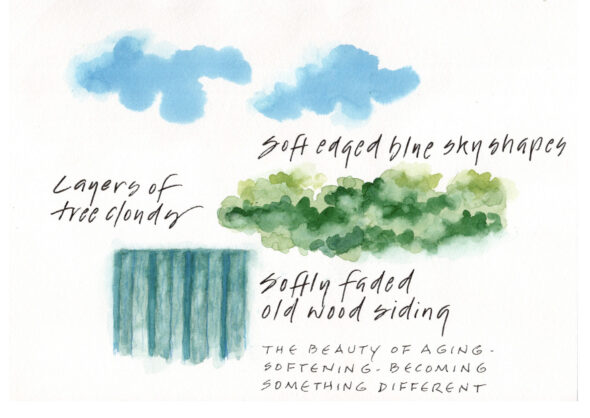 Soft edged blue sky shapes
Layers of
tree clouds
Softly faded
old wood siding
THE BEAUTY OF AGING -
SOFTENING - BECOMING
SOMETHING DIFFERENT